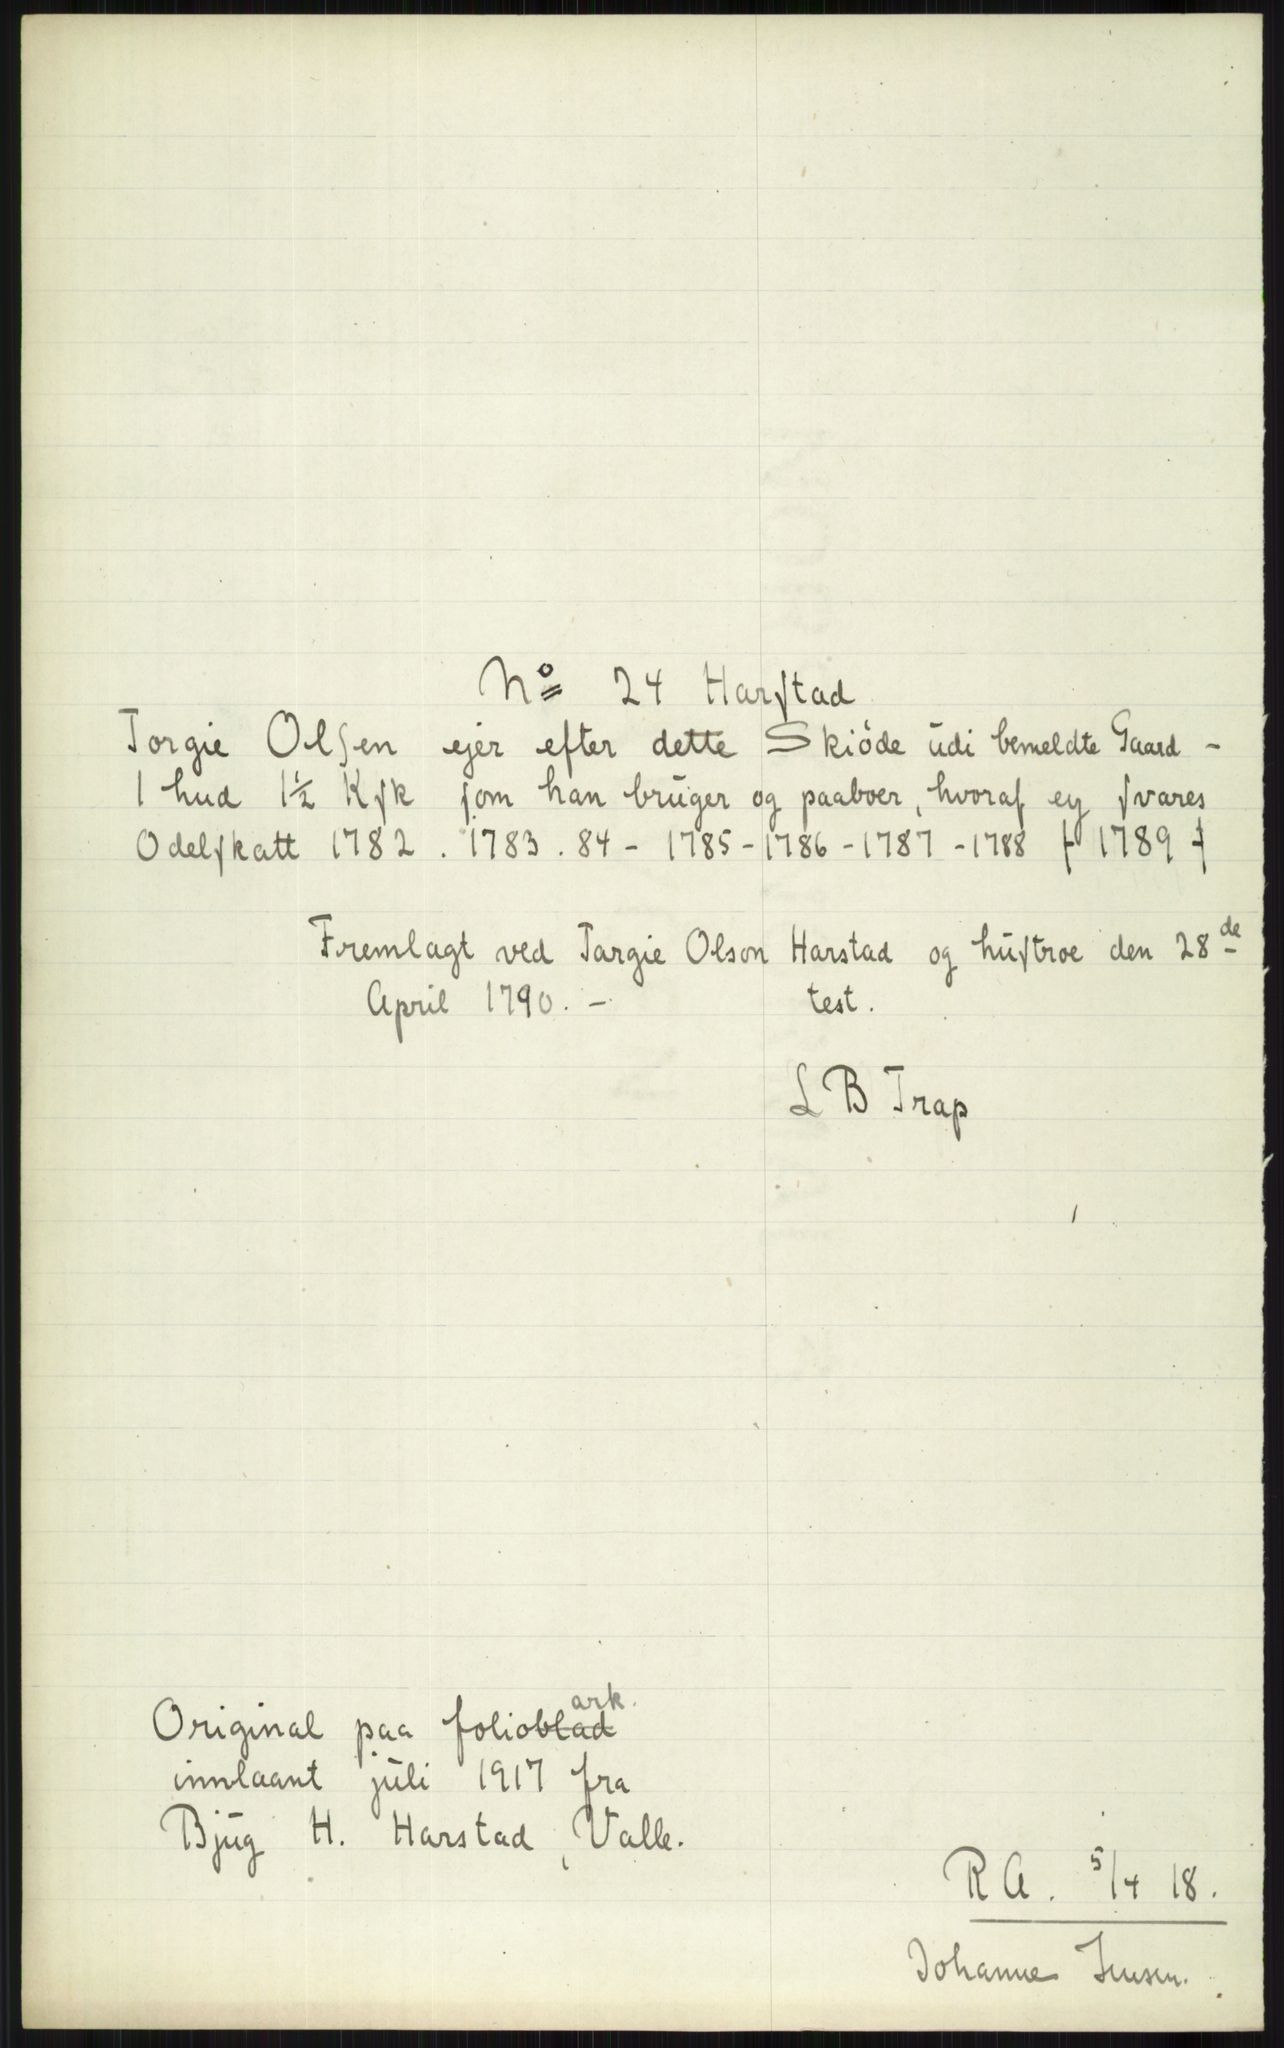 No 24 Harſtad
Torgie Olſen ejer efter dette Skiöde udi bemeldte Gaard -
1 hud 1½ Kſk ſom han bruger og paaboer, hvoraf ey ſvares
Odelſkatt 1782 . 1783 . 84 - 1785 - 1786 - 1787 - 1788 ƚ 1789 ƚ
Fremlagt ved Targie Olson Harstad og huſtroe den 28de
April 1790. - test.
L B Trap
Original paa folioblad ark.
innlaant juli 1917 fra
Bjug H. Harstad, Valle.
R A. 5/4 18.
Johanne Jensen.